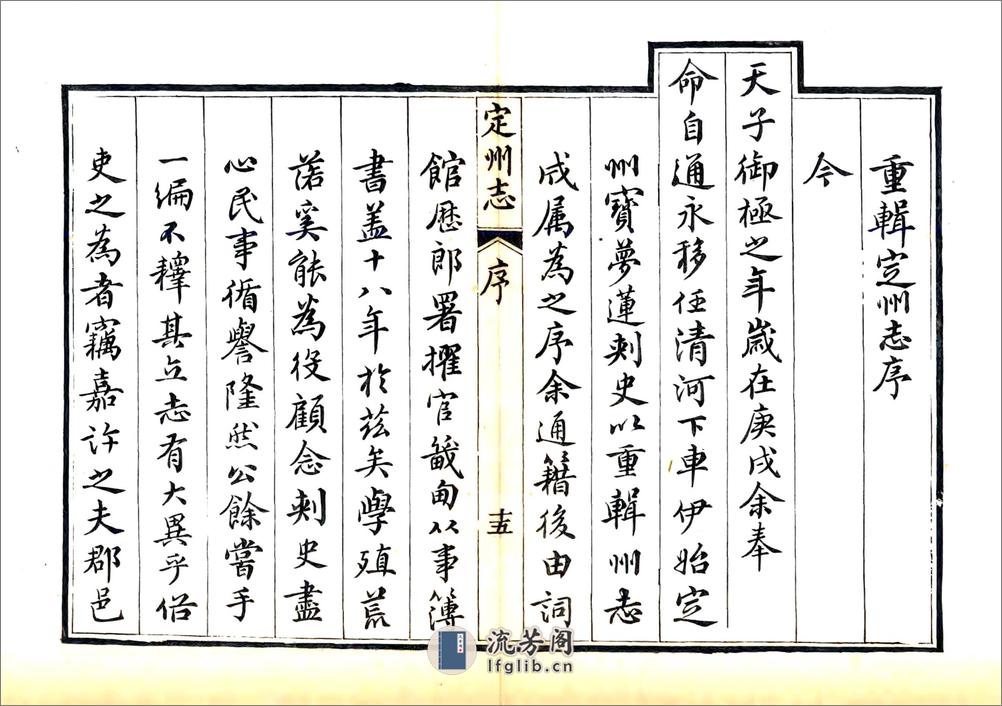 重輯定州志序
今
天子御極之年歲在庚戌余奉
命自通永移任清河下車伊始定
州寶夢蓮刺史以重輯州志
成属為之序余通籍後由詞
定州志
序
十五
館歷郎署擢官畿甸從事簿
書盖十八年於茲矣學殖荒
落奚能為役顧念刺史盡
心民事循譽隆然公餘嘗手
一編不釋其立志有大異乎俗
吏之為者竊嘉許之夫郡邑
流芳阁
lfglib.cn